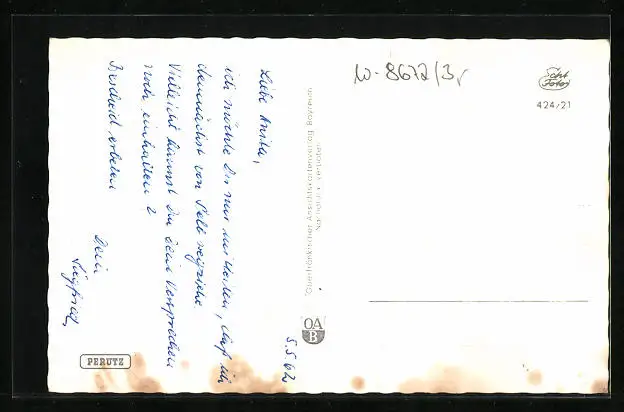 5.5.62
Liebe Anita,
ich möchte Dir nur mitteilen, daß ich
demnächst von Selb wegziehe.
Vielleicht kannst Du dein Versprechen
noch einhalten?
Bescheid erbeten
Dein
Siegfried
PERUTZ
Oberfränkischer Ansichtskartenverlag Bayreuth
Nachdruck verboten
OA
B
W-8672/3
Echt
Foto
424/21